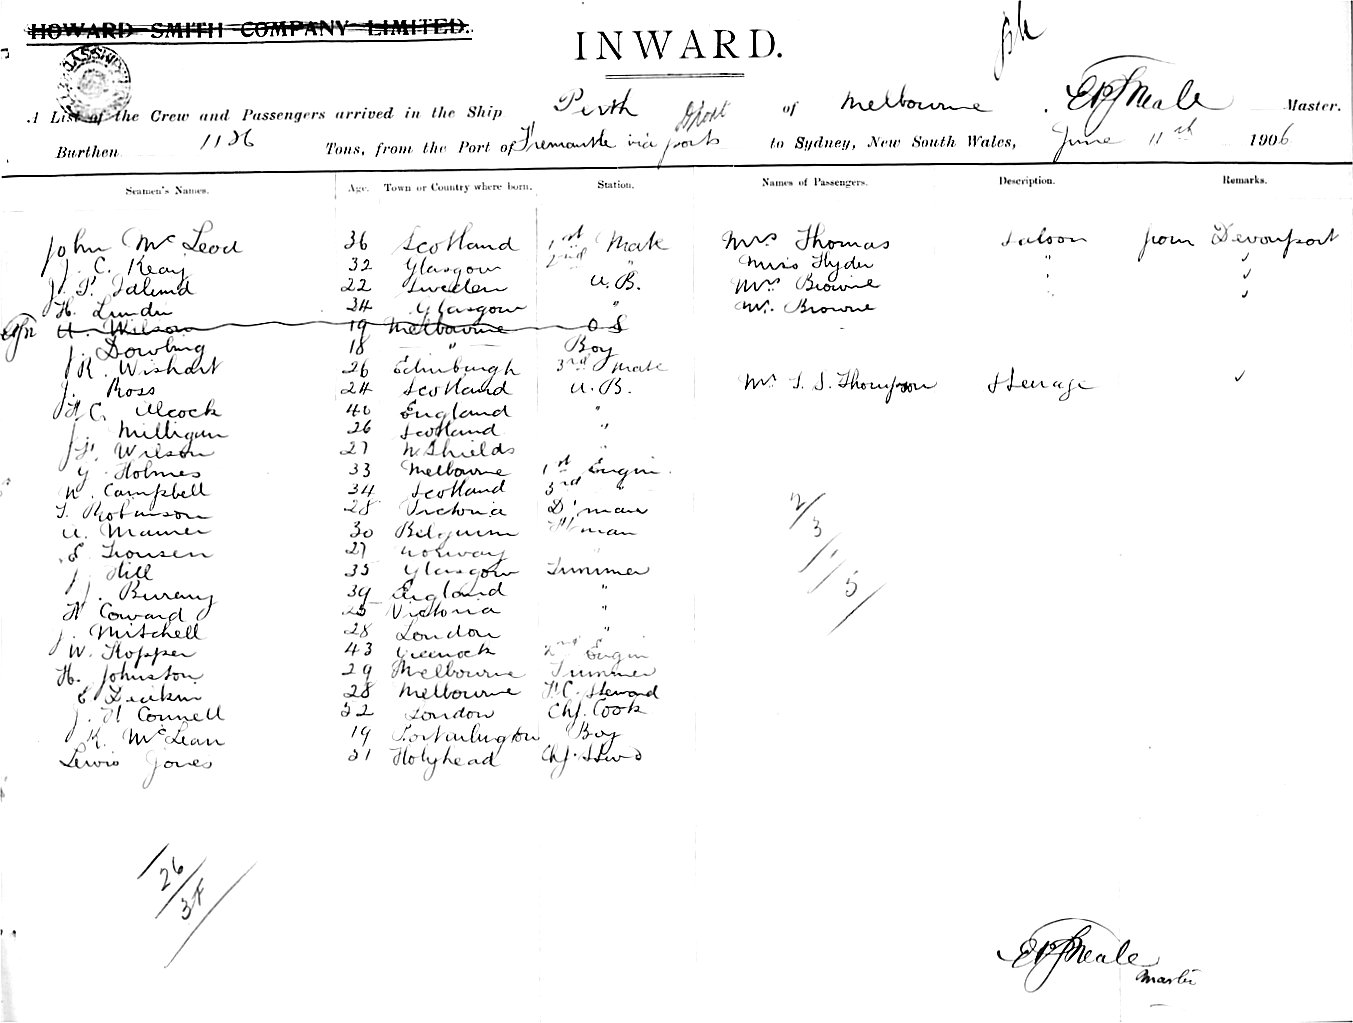 HOWARD SMITH COMPANY LIMITED.
INWARD.
A List of the Crew and Passengers arrived in the Ship Perth of Melbourne. Neale Master.
Burthen 1136 Tons, from the Port of Fremantle via ports to Sydney, New South Wales, June 11th 1906
Seamen's Names. Age. Town or Country where born. Station. Names of Passengers. Description. Remarks.
John McLeod 36 Scotland 1st Mate Mrs Thomas Saloon from Devonport
J. C. Keay 32 Glasgow 2nd " Miss Hyder " ✓
22 Sweden A.B. Mrs Browne
H. 34 Glasgow " Mr. Browne ✓
A. Wilson 19 Melbourne O S
J. Dowling 18 " Boy
J R. Wishart 26 Edinburgh 3rd Mate
J. Ross 24 Scotland A.B. Mr Thompson Steerage ✓
H C. Alcock 40 England "
J. Milligan 26 Scotland "
Wilson 27 N. Shields "
G. Holmes 33 Melbourne 1st Engin.
W. Campbell 34 Scotland 3rd "
T. Robinson 28 Victoria D'man
A. Maurer 30 Belgium F'man
E 27 Norway "
J. Hill 35 Glasgow Trimmer
J. 39 England "
H Coward 25 Victoria "
J. Mitchell 28 London "
W. Hopper 43 Greenock 2nd Engin
H. Johnston 29 Melbourne Trimmer
E Deakin 28 Melbourne F.C. Steward
J. H Connell 52 London Chf. Cook
K. McLean 19 Portarlington Boy
Lewis Jones 51 Holyhead Chf. Stwd
2/3/1/5/
26/34
Neale
Master